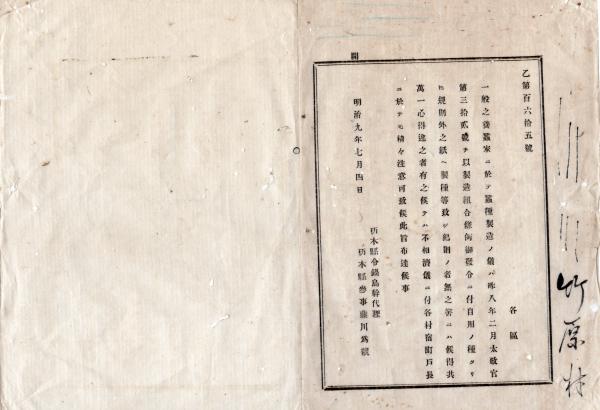 竹原村
乙第百六拾五號
各區
一般之養蠶家ニ於テ蠶種製造ノ儀ハ昨八年二月太政官
第三拾貳號ヲ以製造組合條例御發令ニ付自用ノ種タリ
ヒ規則外之紙ヘ製種等致シ犯則ノ者無之筈ニハ候得共
萬一心得違之者有之候テハ不相濟儀ニ付各村宿町戸長
ニ於テモ精々注意可致候此旨布達候事
明治九年七月四日
栃木縣令鍋島幹代理
栃木縣參事藤川爲親